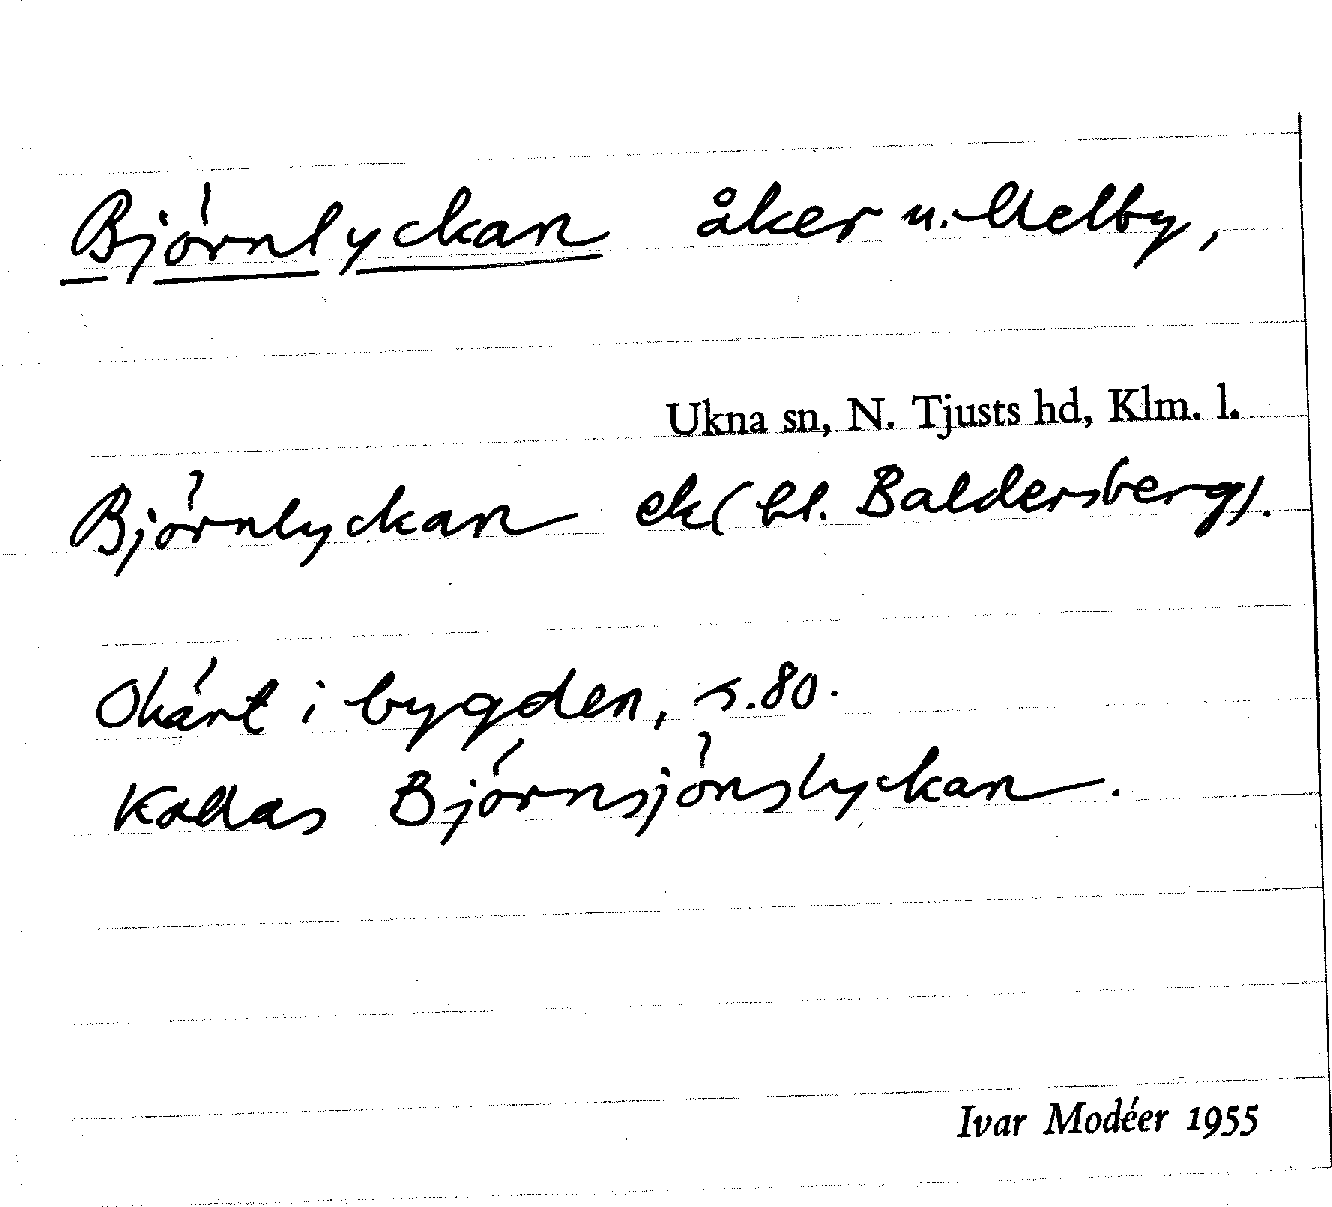 Björnlyckan åker u. Melby,
Ukna sn, N. Tjusts hd, Klm. l.
Björnlyckan ek (bl. Baldersberg).
Okänt i bygden, s. 80.
Kallas Björnsjönslyckan.
Ivar Modéer 1955